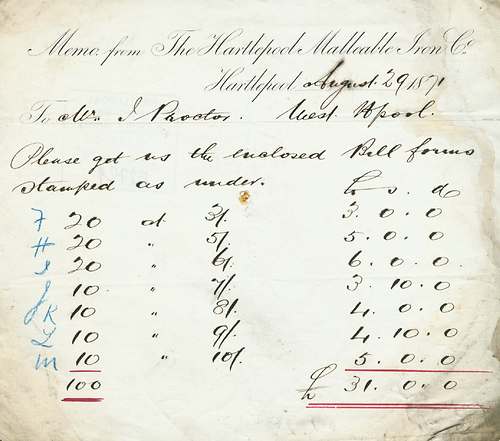 Memo. from The Hartlepool Malleable Iron Co.
Hartlepool August 29 1871
To Mr. J Proctor. West Hpool.
Please get us the enclosed Bill forms
stamped as under. £ s. d
F 20 at 3/. 3. 0. 0
H 20 " 5/. 5. 0. 0
I 20 " 6/. 6. 0. 0.
J 10. " 7/. 3. 10. 0
K 10 " 8/. 4. 0. 0
L 10 " 9/. 4. 10. 0
M 10 " 10/. 5. 0. 0
100 £ 31. 0. 0